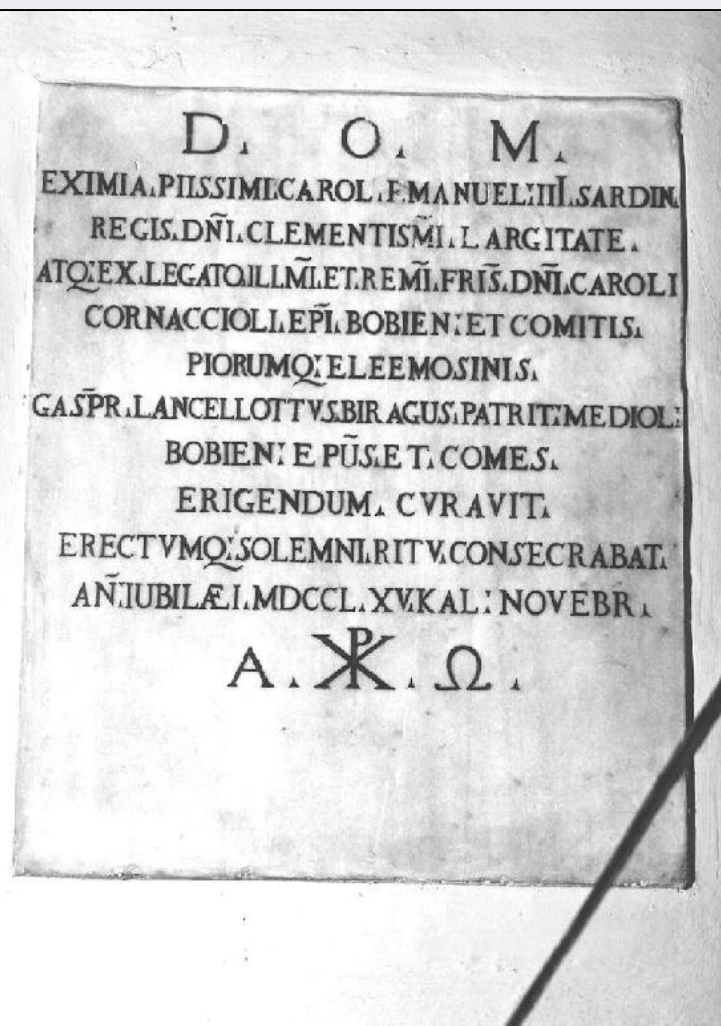 D. O. M.
EXIMIA.PIISSIMI.CAROL.E.MANUEL:IIII.SARDIN.
REGIS.DÑI.CLEMENTISM̃I.LARGITATE.
ATQ:EX.LEGATO.ILLM̃I.ET.REM̃I.FRIS̃.DÑI.CAROLI
CORNACCIOLI.EPĨ.BOBIEN:ET COMITIS.
PIORUMQ:ELEEMOSINIS.
GASP̃R.LANCELLOTTVS.BIRAGUS.PATRIT:MEDIOL:
BOBIEN: EPŨS.ET.COMES.
ERIGENDUM.CVRAVIT.
ERECTVMQ:SOLEMNI.RITV.CONSECRABAT.
AÑ:IUBILÆI.MDCCL.XV.KAL:NOVEBR.
A.☧.Ω.